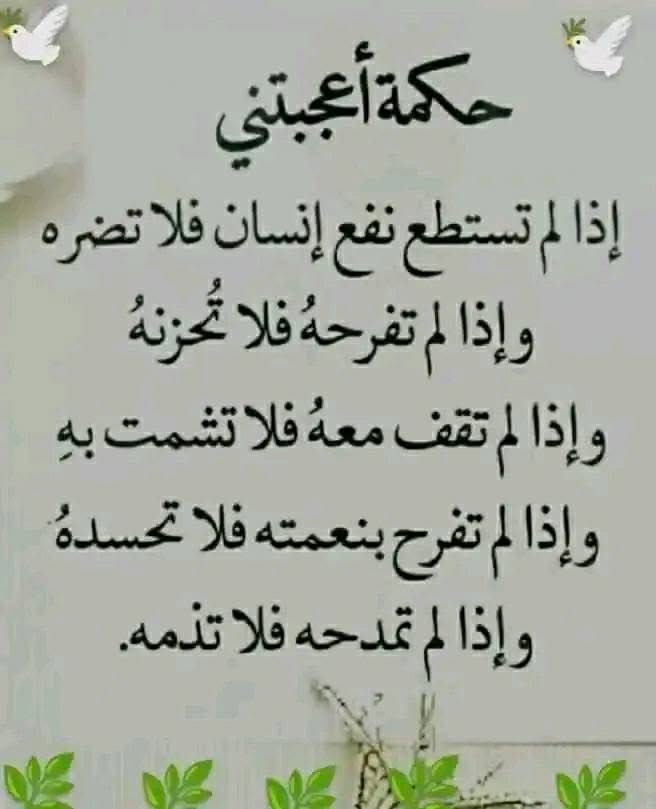 حكمة أعجبتني
إذا لم تستطع نفع إنسان فلا تضره
وإذا لم تفرحهُ فلا تُحزنهُ
وإذا لم تقف معهُ فلا تشمت بهِ
وإذا لم تفرح بنعمته فلا تحسدهُ
وإذا لم تمدحه فلا تذمه.